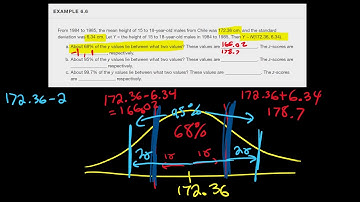 EXAMPLE 6.6
From 1984 to 1985, the mean height of 15 to 18-year-old males from Chile was 172.36 cm, and the standard
deviation was 6.34 cm. Let Y = the height of 15 to 18-year-old males in 1984 to 1985. Then Y ~ N(172.36, 6.34).
a. About 68% of the y values lie between what two values? These values are 166.02 178.7. The z-scores are
-1, 1 respectively.
b. About 95% of the y values lie between what two values? These values are ________. The z-scores
are ________ respectively.
c. About 99.7% of the y values lie between what two values? These values are ________. The z-scores
are ________, respectively.
172.36-2
172.36-6.34
=166.02
172.36+6.34
178.7
95%
68%
2σ 1σ 1σ 2σ
172.36